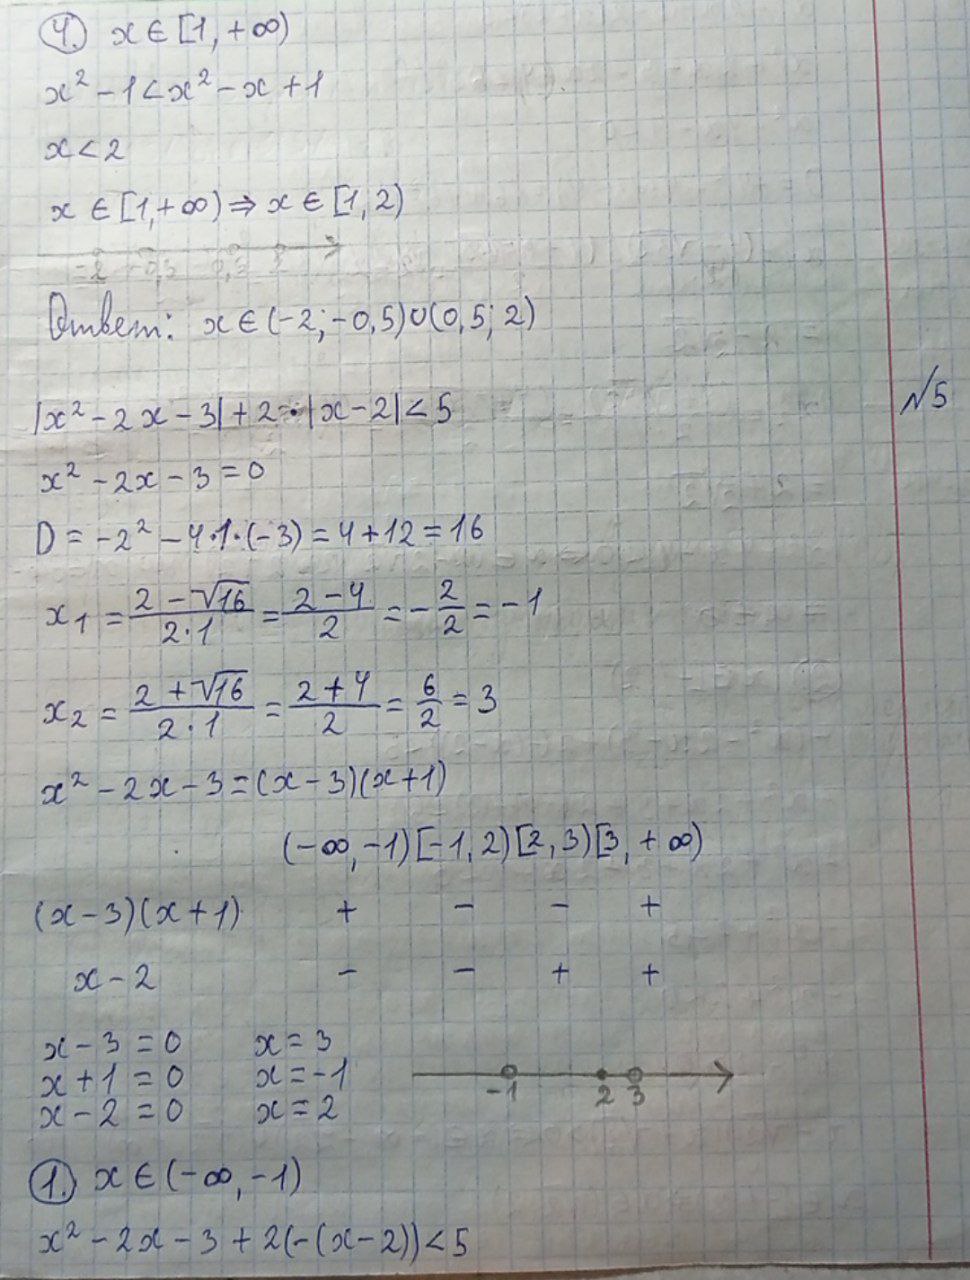 4. x ∈ [1, +∞)
x² - 1 < x² - x + 1
x < 2
x ∈ [1, +∞) ⇒ x ∈ [1, 2)
-2 -0,5 0,5 2
Ответ: x ∈ (-2; -0,5) ∪ (0,5; 2)
№5
|x² - 2x - 3| + 2 · |x - 2| < 5
x² - 2x - 3 = 0
D = -2² - 4·1·(-3) = 4 + 12 = 16
x₁ = (2 - √16)/(2·1) = (2 - 4)/2 = -2/2 = -1
x₂ = (2 + √16)/(2·1) = (2 + 4)/2 = 6/2 = 3
x² - 2x - 3 = (x - 3)(x + 1)
(-∞, -1) [-1, 2) [2, 3) [3, +∞)
(x - 3)(x + 1) + - - +
x - 2 - - + +
x - 3 = 0 x = 3
x + 1 = 0 x = -1
x - 2 = 0 x = 2
-1 2 3
1. x ∈ (-∞, -1)
x² - 2x - 3 + 2(-(x - 2)) < 5